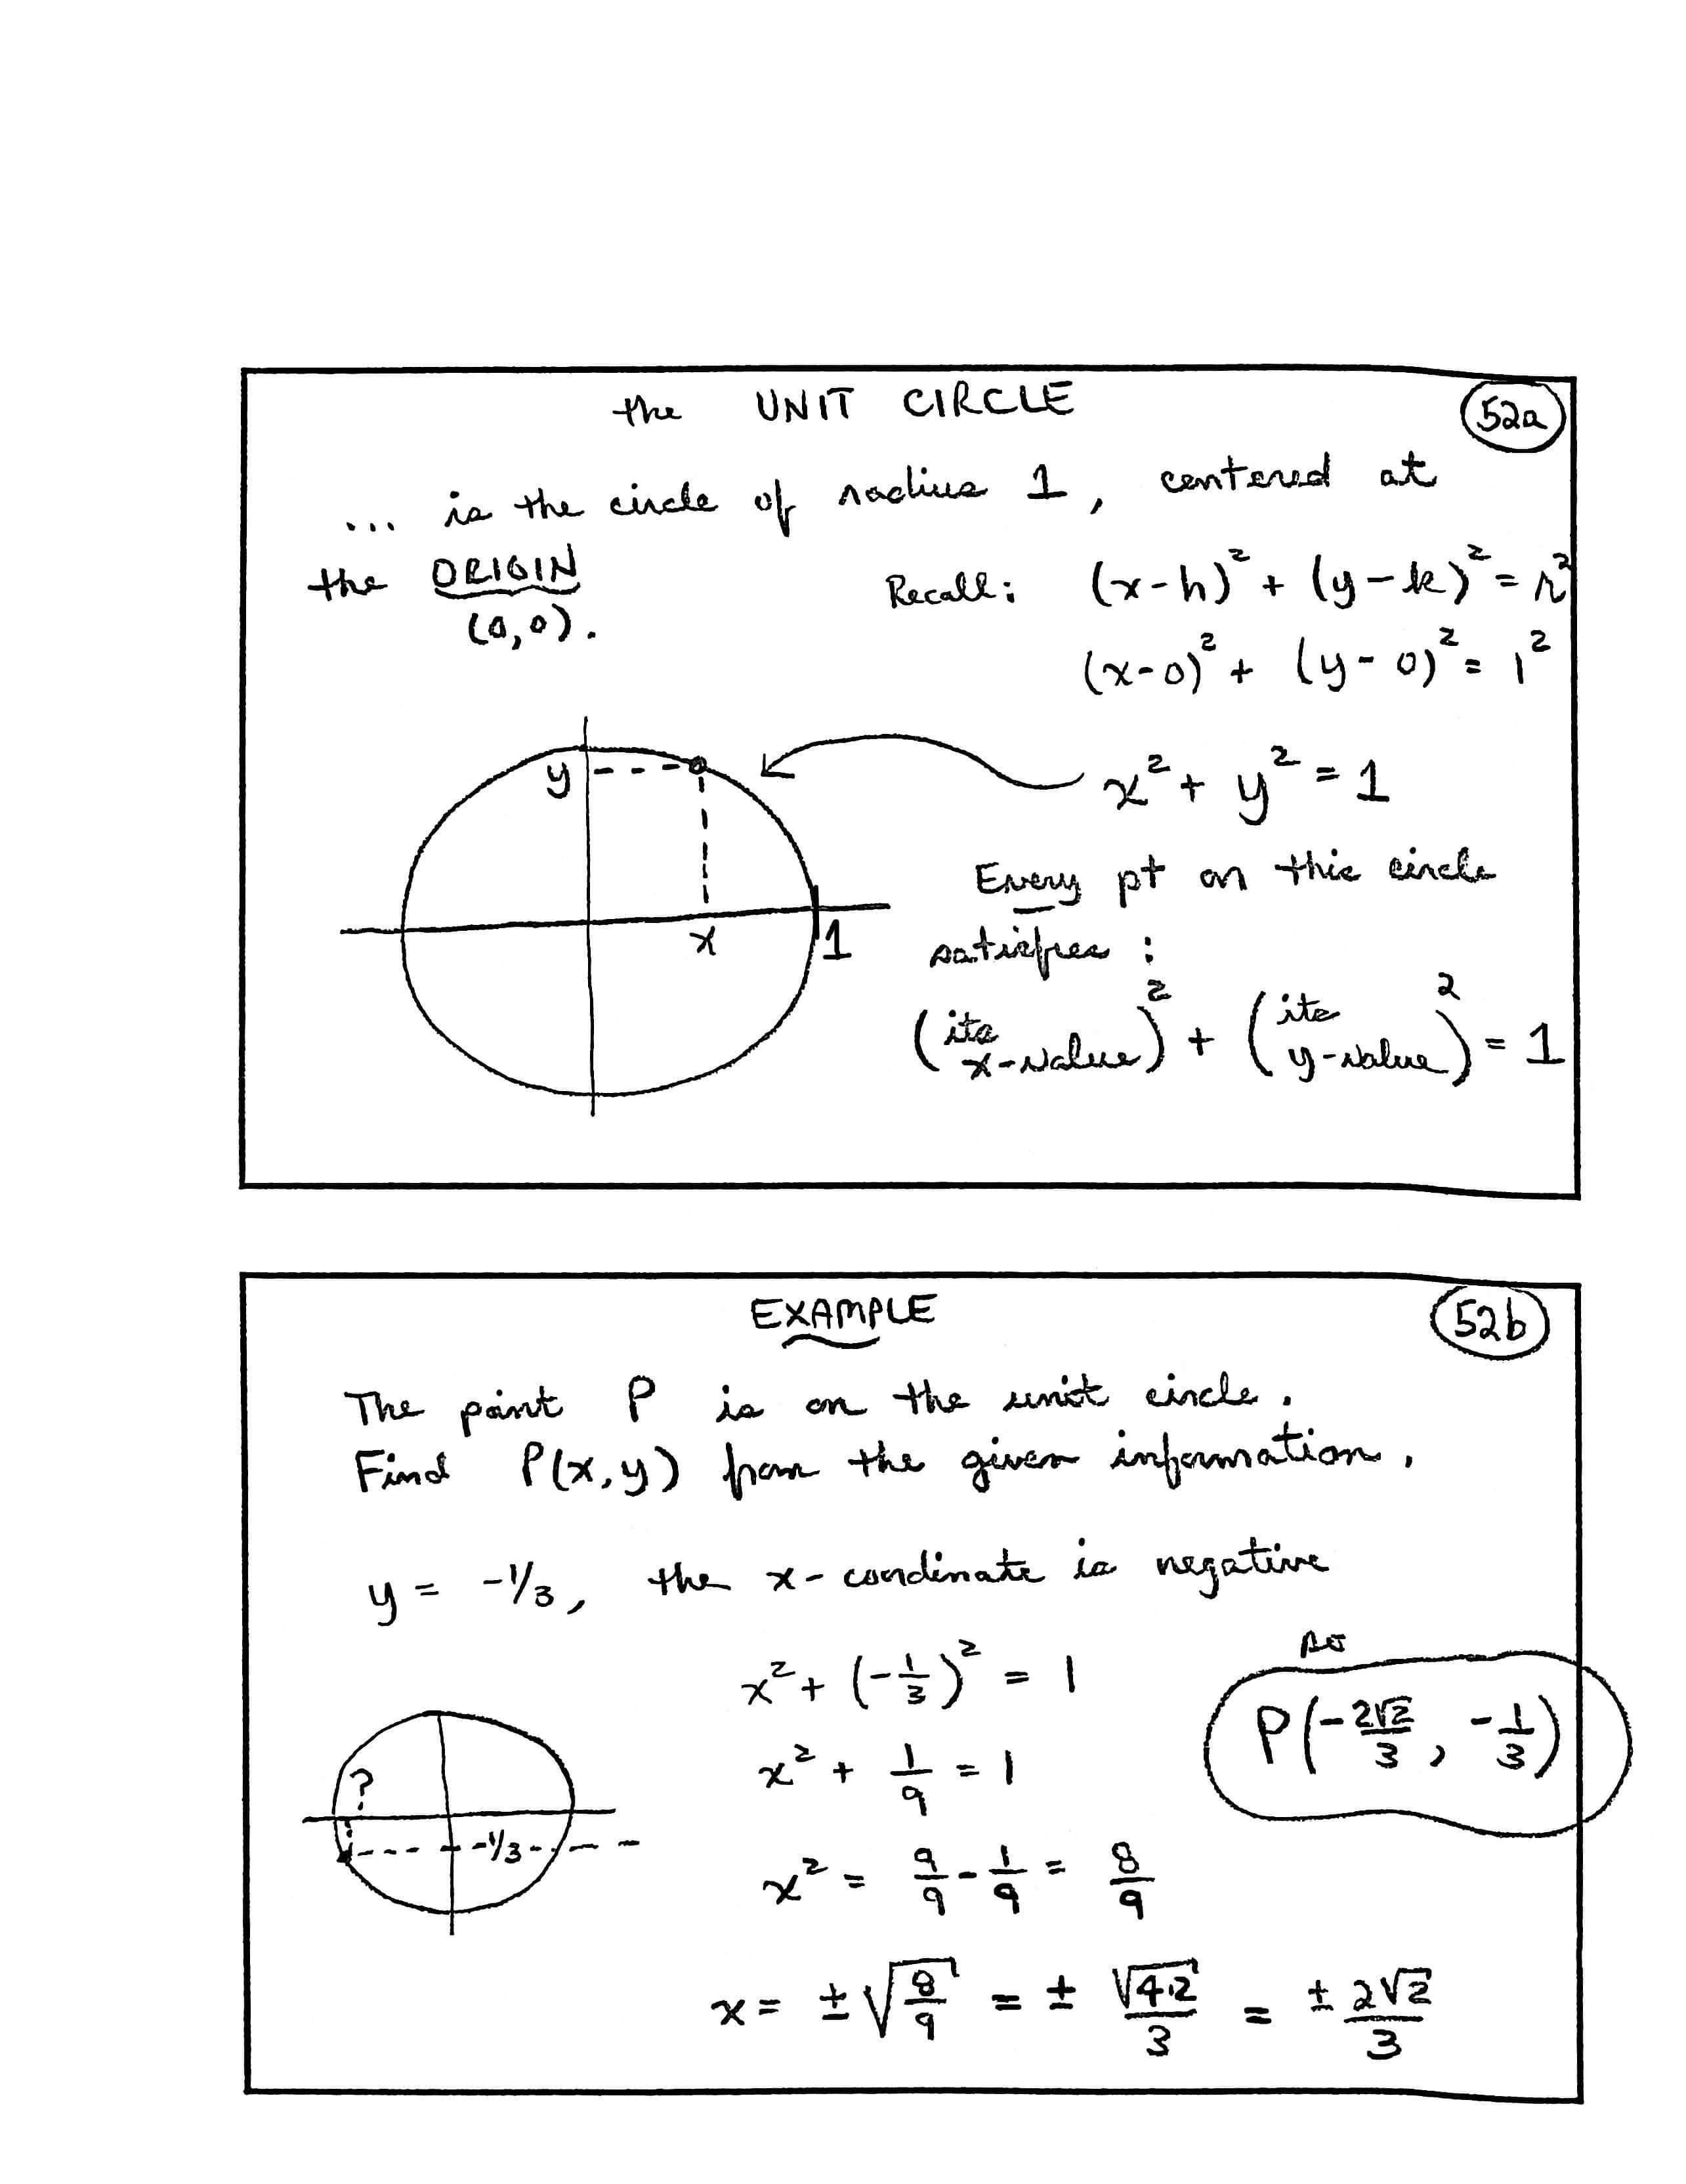 the UNIT CIRCLE
52a
... is the circle of radius 1, centered at
the ORIGIN
(0,0).
Recall: (x-h)² + (y-k)² = r²
(x-0)² + (y-0)² = 1²
x² + y² = 1
y
x
1
Every pt on this circle
satisfies:
(its x-value)² + (its y-value)² = 1
EXAMPLE
52b
The point P is on the unit circle.
Find P(x,y) from the given information.
y = -1/3, the x-coordinate is negative
x² + (-1/3)² = 1
so
P(-2√2/3, -1/3)
x² + 1/9 = 1
?
-1/3
x² = 9/9 - 1/9 = 8/9
x = ±√(8/9) = ± √4·2/3 = ± 2√2/3